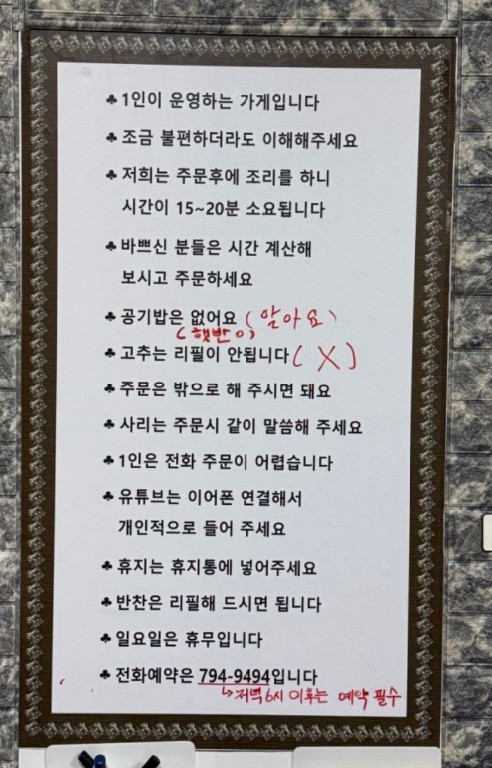 ♣ 1인이 운영하는 가게입니다
♣ 조금 불편하더라도 이해해주세요
♣ 저희는 주문후에 조리를 하니
시간이 15~20분 소요됩니다
♣ 바쁘신 분들은 시간 계산해
보시고 주문하세요
♣ 공기밥은 없어요 (앞아요)
(햇반이)
♣ 고추는 리필이 안됩니다 (X)
♣ 주문은 밖으로 해 주시면 돼요
♣ 사리는 주문시 같이 말씀해 주세요
♣ 1인은 전화 주문이 어렵습니다
♣ 유튜브는 이어폰 연결해서
개인적으로 들어 주세요
♣ 휴지는 휴지통에 넣어주세요
♣ 반찬은 리필해 드시면 됩니다
♣ 일요일은 휴무입니다
♣ 전화예약은 794-9494입니다
↳저녁 6시 이후는 예약 필수